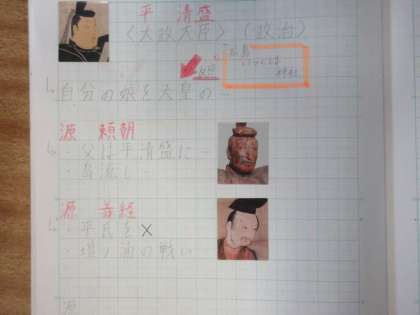 平 清盛
〈太政大臣〉 (政治)
自分の娘を天皇の…
源 頼朝
父は平清盛に…
島流し
源 義経
平氏を×
壇ノ浦の戦い
源